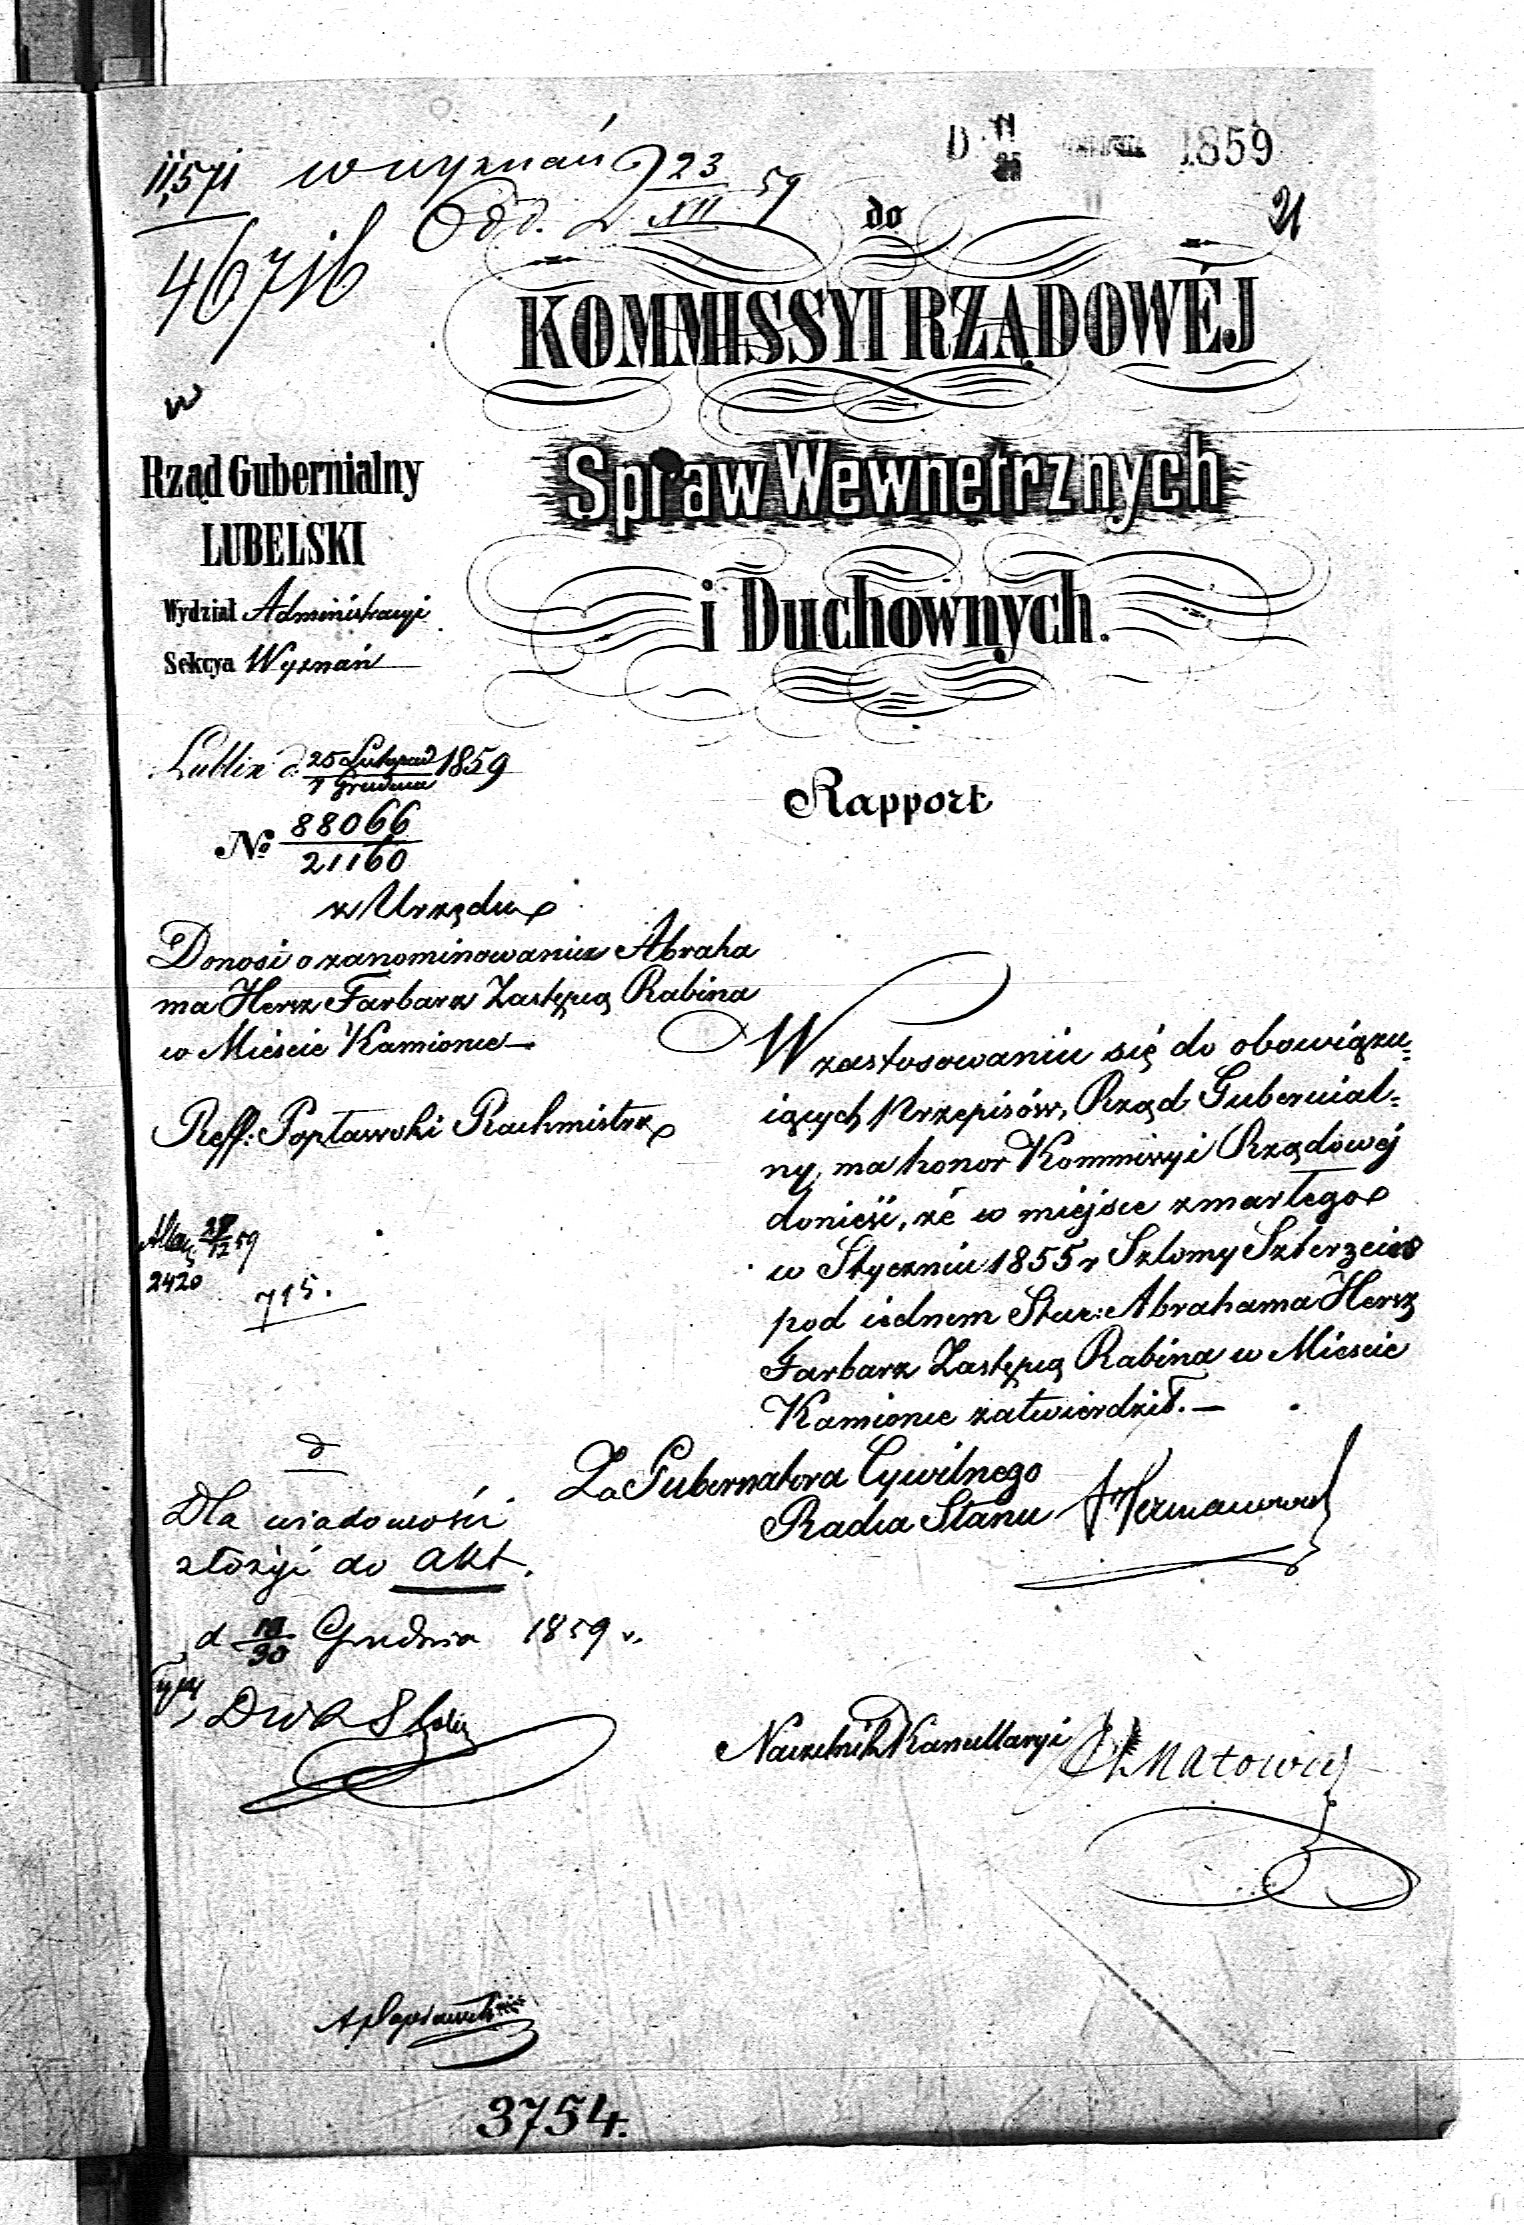 D. 11 1859
11,571 w wyznań 23
Odd. XII 59
46716
21
do
KOMMISSYI RZĄDOWÉJ
Spraw Wewnetrznych
i Duchownych.
w
Rząd Gubernialny
LUBELSKI
Wydział Administracyi
Sekcya Wyznań
Lublin d. 25 Listopad 1859
7 Grudnia
No 88066
21160
z Urzędu
Rapport
Donosi o zanominowaniu Abraha
ma Hersz Farbarz Zastępcą Rabina
w Mieście Kamionce
Reff: Popławski Rachmistrz
12 59
2420
715.
W zastosowaniu się do obowiązu=
iących Przepisów, Rząd Gubernial=
ny, ma honor Kommissyi Rządowéj
donieść, że w miejsce zmarłego
w Styczniu 1855 r Szlomy Szterzeis
pod iednem Star: Abrahama Hersz
Farbarz Zastępcą Rabina w Mieście
Kamionce zatwierdził.—
Za Gubernatora Cywilnego
Radca Stanu
Dla wiadomości
złożyć do akt.
d 18/30 Grudnia 1859 r.
Naczelnik Kancellaryi
A Popławski
3754.